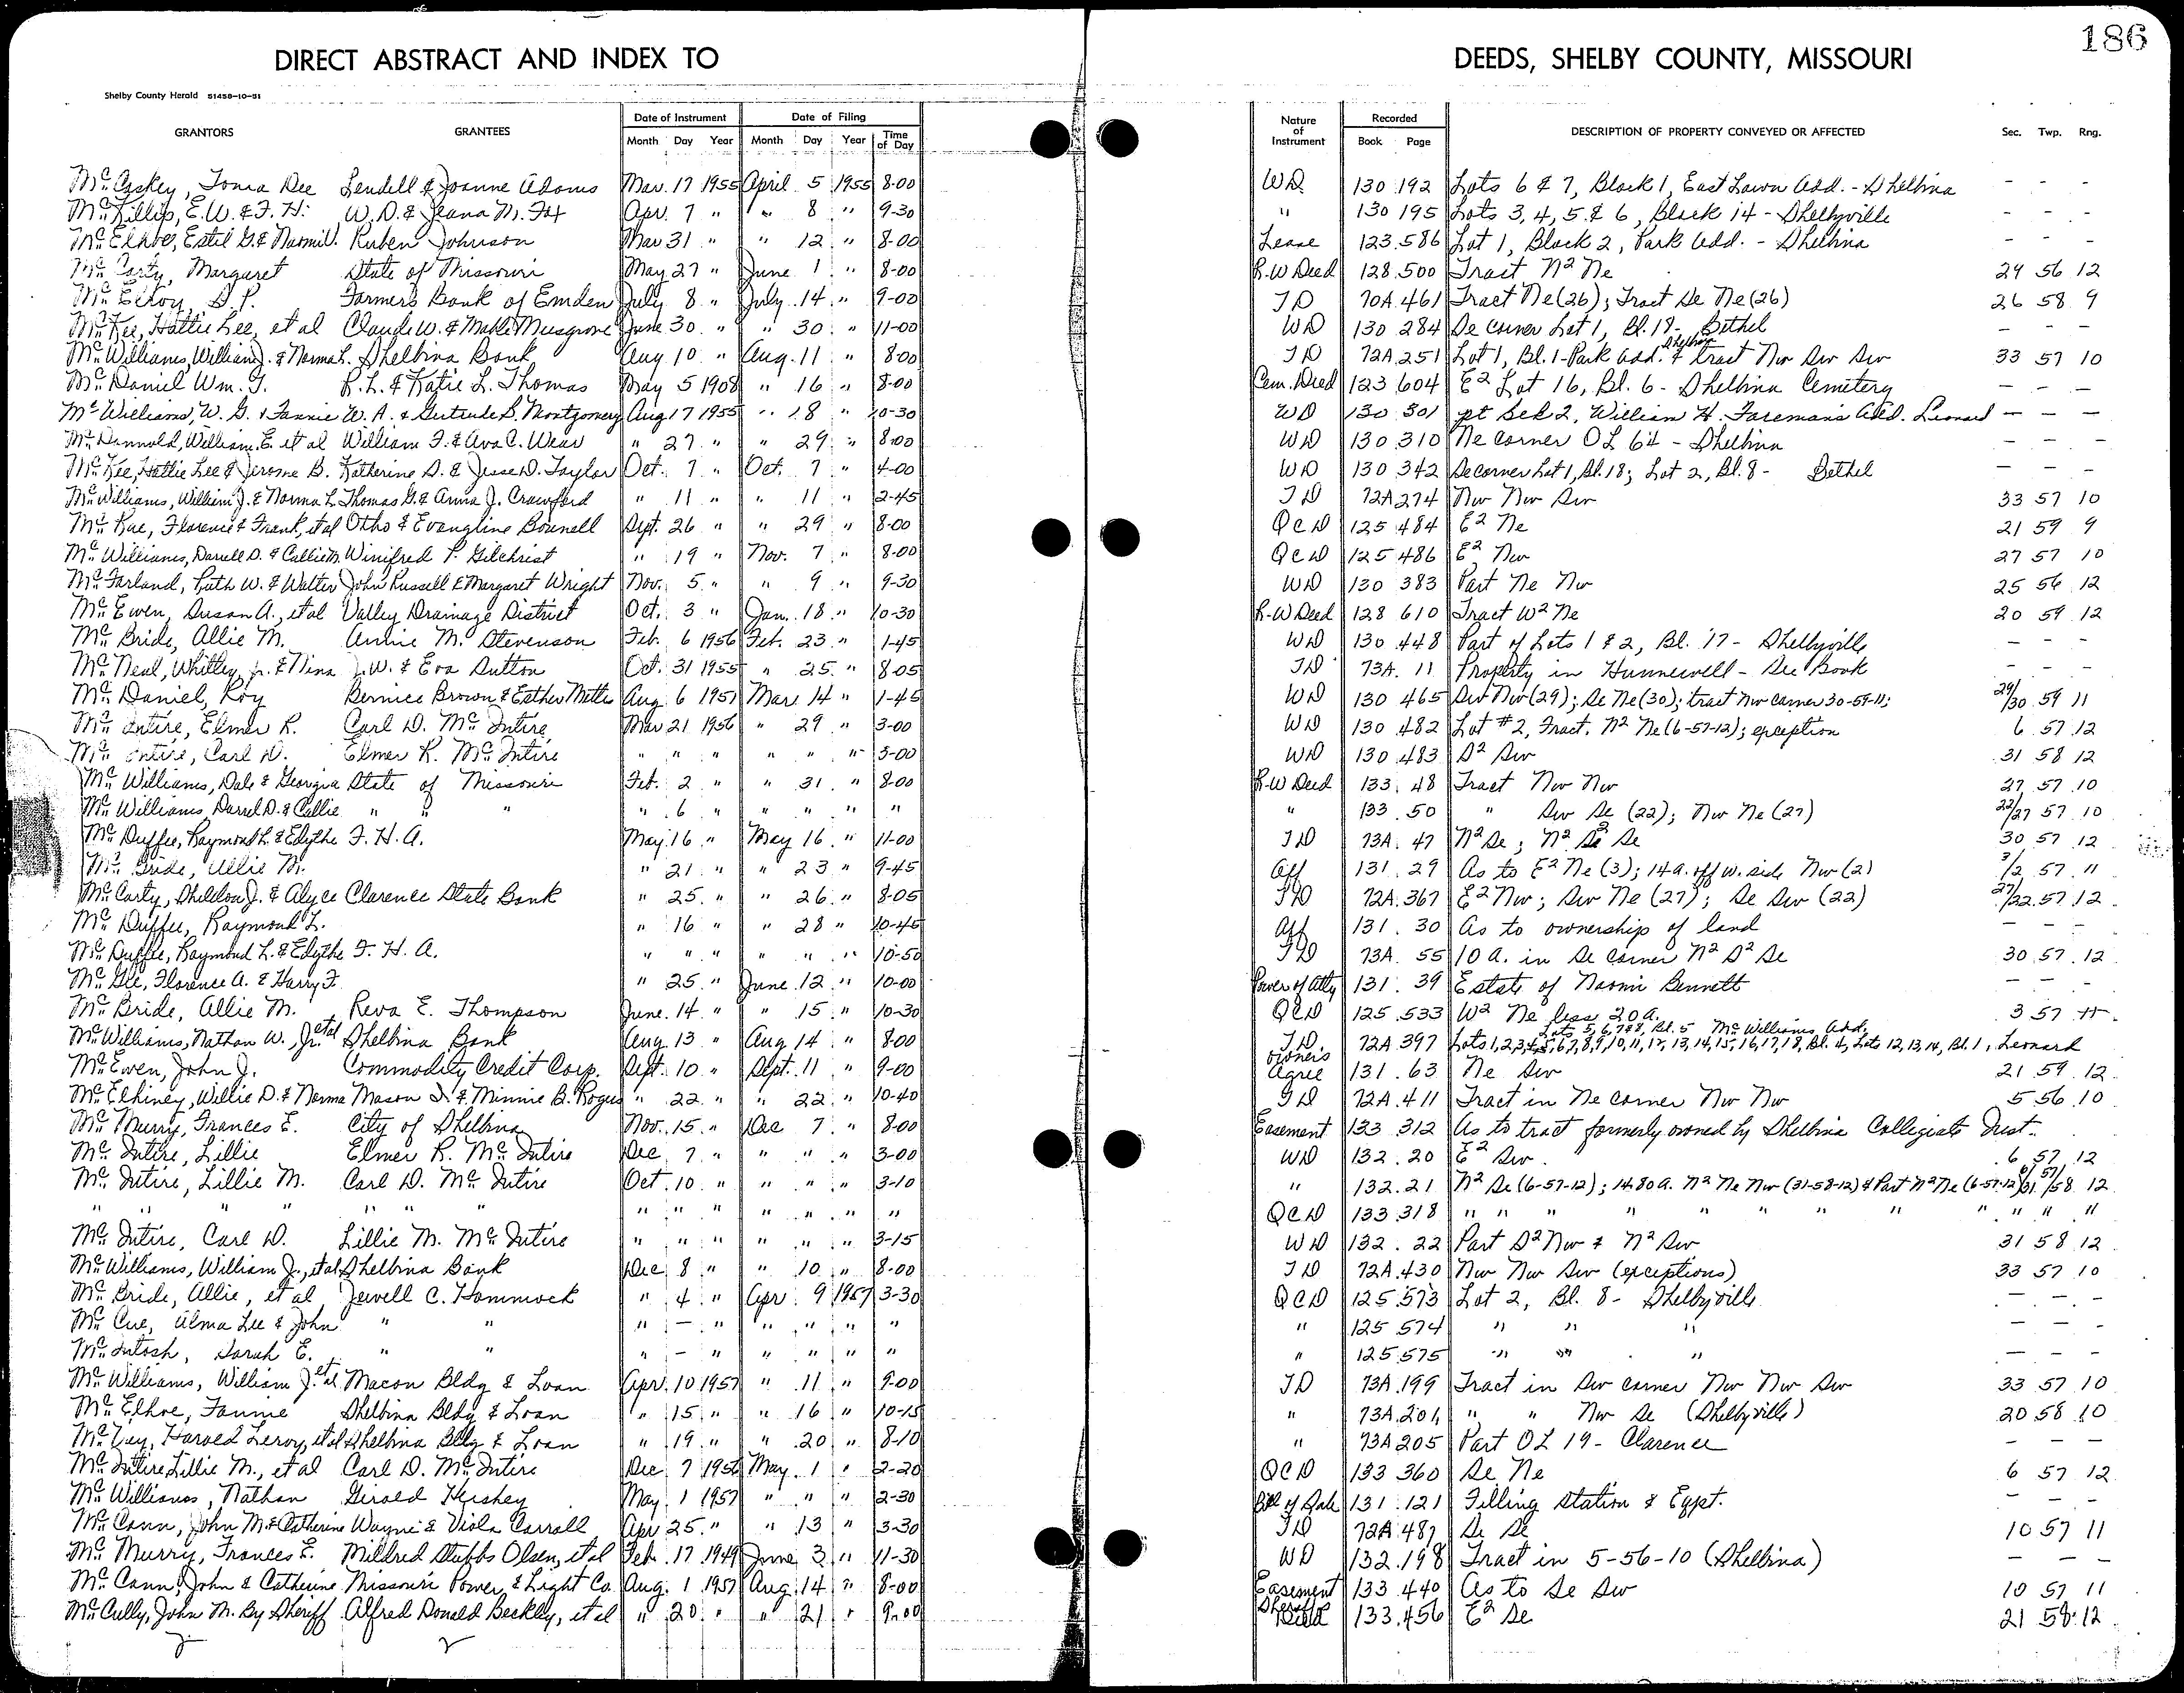 186
DIRECT ABSTRACT AND INDEX TO DEEDS, SHELBY COUNTY, MISSOURI
Shelby County Herald 51458-10-51
GRANTORS GRANTEES Date of Instrument Month Day Year Date of Filing Month Day Year Time of Day Nature of Instrument Recorded Book Page DESCRIPTION OF PROPERTY CONVEYED OR AFFECTED Sec. Twp. Rng.
McCaskey, Toma Dee Lendell & Joanne Adams Mar. 17 1955 April 5 1955 8-00 WD 130 192 Lots 6 & 7, Block 1, East Lawn Add. - Shelbina - - -
McKillip, E.W. & F.H. W.D. & Jeana M. Fox Apr. 7 " " 8 " 9-30 " 130 195 Lots 3, 4, 5 & 6, Block 14 - Shelbyville - - -
McElhoe, Estil G. & Naomi V. Ruben Johnson Mar 31 " " 12 " 8-00 Lease 123 586 Lot 1, Block 2, Park Add. - Shelbina - - -
McCarty, Margaret State of Missouri May 27 " June 1 " 8-00 R-W Deed 128 500 Tract N2 Ne 24 56 12
McElroy, S.P. Farmers Bank of Emden July 8 " July 14 " 9-00 TD 70A 461 Tract Ne (26); Tract Se Ne (26) 26 58 9
McKee, Hattie Lee, et al Claude W. & Mable Musgrove June 30 " " 30 " 11-00 WD 130 284 Se corner Lot 1, Bl. 18- Bethel - - -
McWilliams, William J. & Norma L. Shelbina Bank Aug 10 " Aug. 11 " 8-00 TD 72A 251 Lot 1, Bl. 1-Park Add. Shelbina & tract Nw Sw Sw 33 57 10
McDaniel Wm. T. R.L. & Katie L. Thomas May 5 1908 " 16 " 8-00 Cem. Deed 123 604 E2 Lot 16, Bl. 6 - Shelbina Cemetery - - -
McWilliams, W.G. & Fannie W.A. & Gertrude S. Montgomery Aug 17 1955 " 18 " 10-30 WD 130 301 pt Blk 2, William H. Foreman's Add. Leonard - - -
McDannold, William E. et al William F. & Ava C. Wear " 27 " " 29 " 8-00 WD 130 310 Ne corner OL 64 - Shelbina - - -
McKee, Hattie Lee & Jerome B. Katherine D. & Jesse D. Taylor Oct. 7 " Oct. 7 " 4-00 WD 130 342 Se corner Lot 1, Bl. 18; Lot 2, Bl. 8 - Bethel - - -
McWilliams, William J. & Norma L. Thomas G. & Anna J. Crawford " 11 " " 11 " 2-45 TD 72A 274 Nw Nw Sw 33 57 10
McRae, Florence & Frank, et al Otho & Evangline Bounell Sept. 26 " " 29 " 8-00 QCD 125 484 E2 Ne 21 59 9
McWilliams, Darrell D. & Callie M. Winifred P. Gilchrist " 19 " Nov. 7 " 8-00 QCD 125 486 E2 Nw 27 57 10
McFarland, Ruth W. & Walter John Russell & Margaret Wright Nov. 5 " " 9 " 9-30 WD 130 383 Part Ne Nw 25 56 12
McEwen, Susan A., et al Valley Drainage District Oct. 3 " Jan. 18 " 10-30 R-W Deed 128 610 Tract W2 Ne 20 59 12
McBride, Allie M. Annie M. Stevenson Feb. 6 1956 Feb. 23 " 1-45 WD 130 448 Part of Lots 1 & 2, Bl. 17 - Shelbyville - - -
McNeal, Whitley Jr. & Nina J.W. & Eva Dutton Oct. 31 1955 " 25 " 8-05 TD 73A 11 Property in Hunnewell - See Book - - -
McDaniel, Roy Bernice Brown & Esther Mette Aug. 6 1951 Mar. 14 " 1-45 WD 130 465 Sw Nw (29); Se Ne (30); tract Nw corner 30-59-11; 29/30 59 11
McIntire, Elmer R. Carl D. McIntire Mar 21 1956 " 29 " 3-00 WD 130 482 Lot #2, Fract. N2 Ne (6-57-12); exception 6 57 12
McIntire, Carl D. Elmer R. McIntire " " " " " " 3-00 WD 130 483 S2 Sw 31 58 12
McWilliams, Dale & Georgia State of Missouri Feb. 2 " " 31 " 8-00 R-W Deed 133 48 Tract Nw Nw 27 57 10
McWilliams, Darrel D. & Callie " " " " 6 " " " " " " 133 50 " Sw Se (22); Nw Ne (27) 22/27 57 10
McDuffee, Raymond L. & Edythe F.H.A. May 16 " May 16 " 11-00 TD 73A 47 N2 Se; N2 S2 Se 30 57 12
McBride, Allie M. " 21 " " 23 " 9-45 Aff 131 29 As to E2 Ne (3); 14 a. off w. side Nw (2) 3/2 57 11
McCarty, Sheldon J. & Alyce Clarence State Bank " 25 " " 26 " 8-05 TD 72A 367 E2 Nw; Sw Ne (27); Se Sw (22) 27/22 57 12
McDuffee, Raymond L. " 16 " " 28 " 10-45 Aff 131 30 As to ownership of land - - -
McDuffee, Raymond L. & Edythe F.H.A. " " " " " " 10-50 TD 73A 55 10 A. in Se corner N2 S2 Se 30 57 12
McGee, Florence A. & Harry F. " 25 " June 12 " 10-00 Power of Atty 131 39 Estate of Naomi Bennett - - -
McBride, Allie M. Reva E. Thompson June 14 " " 15 " 10-30 QCD 125 533 W2 Ne less 20 a. 3 57 11
McWilliams, Nathan W., Jr. et al Shelbina Bank Aug 13 " Aug 14 " 8-00 TD 72A 397 Lots 5, 6, 7 & 8, Bl. 5 McWilliams Add. Lots 1,2,3,4,5,6,7,8,9,10,11,12,13,14,15,16,17,18, Bl. 4, Lots 12,13,14, Bl. 1, Leonard
McEwen, John J. Commodity Credit Corp. Sept. 10 " Sept. 11 " 9-00 owners Agree 131 63 Ne Sw 21 59 12
McElhiney, Willie D. & Norma Mason I. & Minnie B. Rogus " 22 " " 22 " 10-40 TD 72A 411 Tract in Ne corner Nw Nw 5 56 10
McMurry, Frances E. City of Shelbina Nov. 15 " Dec 7 " 8-00 Easement 133 312 As to tract formerly owned by Shelbina Collegiate Inst.
McIntire, Lillie Elmer R. McIntire Dec 7 " " " " 3-00 WD 132 20 E2 Sw 6 57 12
McIntire, Lillie M. Carl D. McIntire Oct. 10 " " " " 3-10 " 132 21 N2 Se (6-57-12); 14.80 a. N2 Ne Nw (31-58-12) & Part N2 Ne (6-57-12) 6/31 57/58 12
" " " " " " " " " " " " " " QCD 133 318 " " " " " " " " " " " "
McIntire, Carl D. Lillie M. McIntire " " " " " " 3-15 WD 132 22 Part S2 Nw & N2 Sw 31 58 12
McWilliams, William J., et al Shelbina Bank Dec 8 " " 10 " 8-00 TD 72A 430 Nw Nw Sw (exceptions) 33 57 10
McBride, Allie, et al Jewell C. Hammock " 4 " Apr. 9 1957 3-30 QCD 125 573 Lot 2, Bl. 8 - Shelbyville - - -
McCue, Alma Lee & John " " " - " " " " " " 125 574 " " " - - -
McIntosh, Sarah E. " " " - " " " " " " 125 575 " " " - - -
McWilliams, William J. et al Macon Bldg & Loan Apr. 10 1957 " 11 " 9-00 TD 73A 199 Tract in Sw corner Nw Nw Sw 33 57 10
McElhoe, Fannie Shelbina Bldg & Loan " 15 " " 16 " 10-15 " 73A 201 " " Nw Se (Shelbyville) 20 58 10
McVey, Harold Leroy, et al Shelbina Bldg & Loan " 19 " " 20 " 8-10 " 73A 205 Part OL 19 - Clarence - - -
McIntire Lillie M., et al Carl D. McIntire Dec 7 1956 May 1 " 2-20 QCD 133 360 Se Ne 6 57 12
McWilliams, Nathan Girold Hershey May 1 1957 " " " 2-30 Bill of Sale 131 121 Filling Station & Eqpt. - - -
McCann, John M. & Catherine Wayne & Viola Carroll Apr 25 " " 13 " 3-30 TD 72A 487 Se Se 10 57 11
McMurry, Frances E. Mildred Stubbs Olsen, et al Feb. 17 1949 June 3 " 11-30 WD 132 198 Tract in 5-56-10 (Shelbina) - - -
McCann, John & Catherine Missouri Power & Light Co. Aug. 1 1957 Aug. 14 " 8-00 Easement 133 440 As to Se Sw 10 57 11
McCully, John M. By Sheriff Alfred Donald Beckley, et al " 20 " " 21 " 9-00 Sheriff Deed 133 456 E2 Se 21 58 12